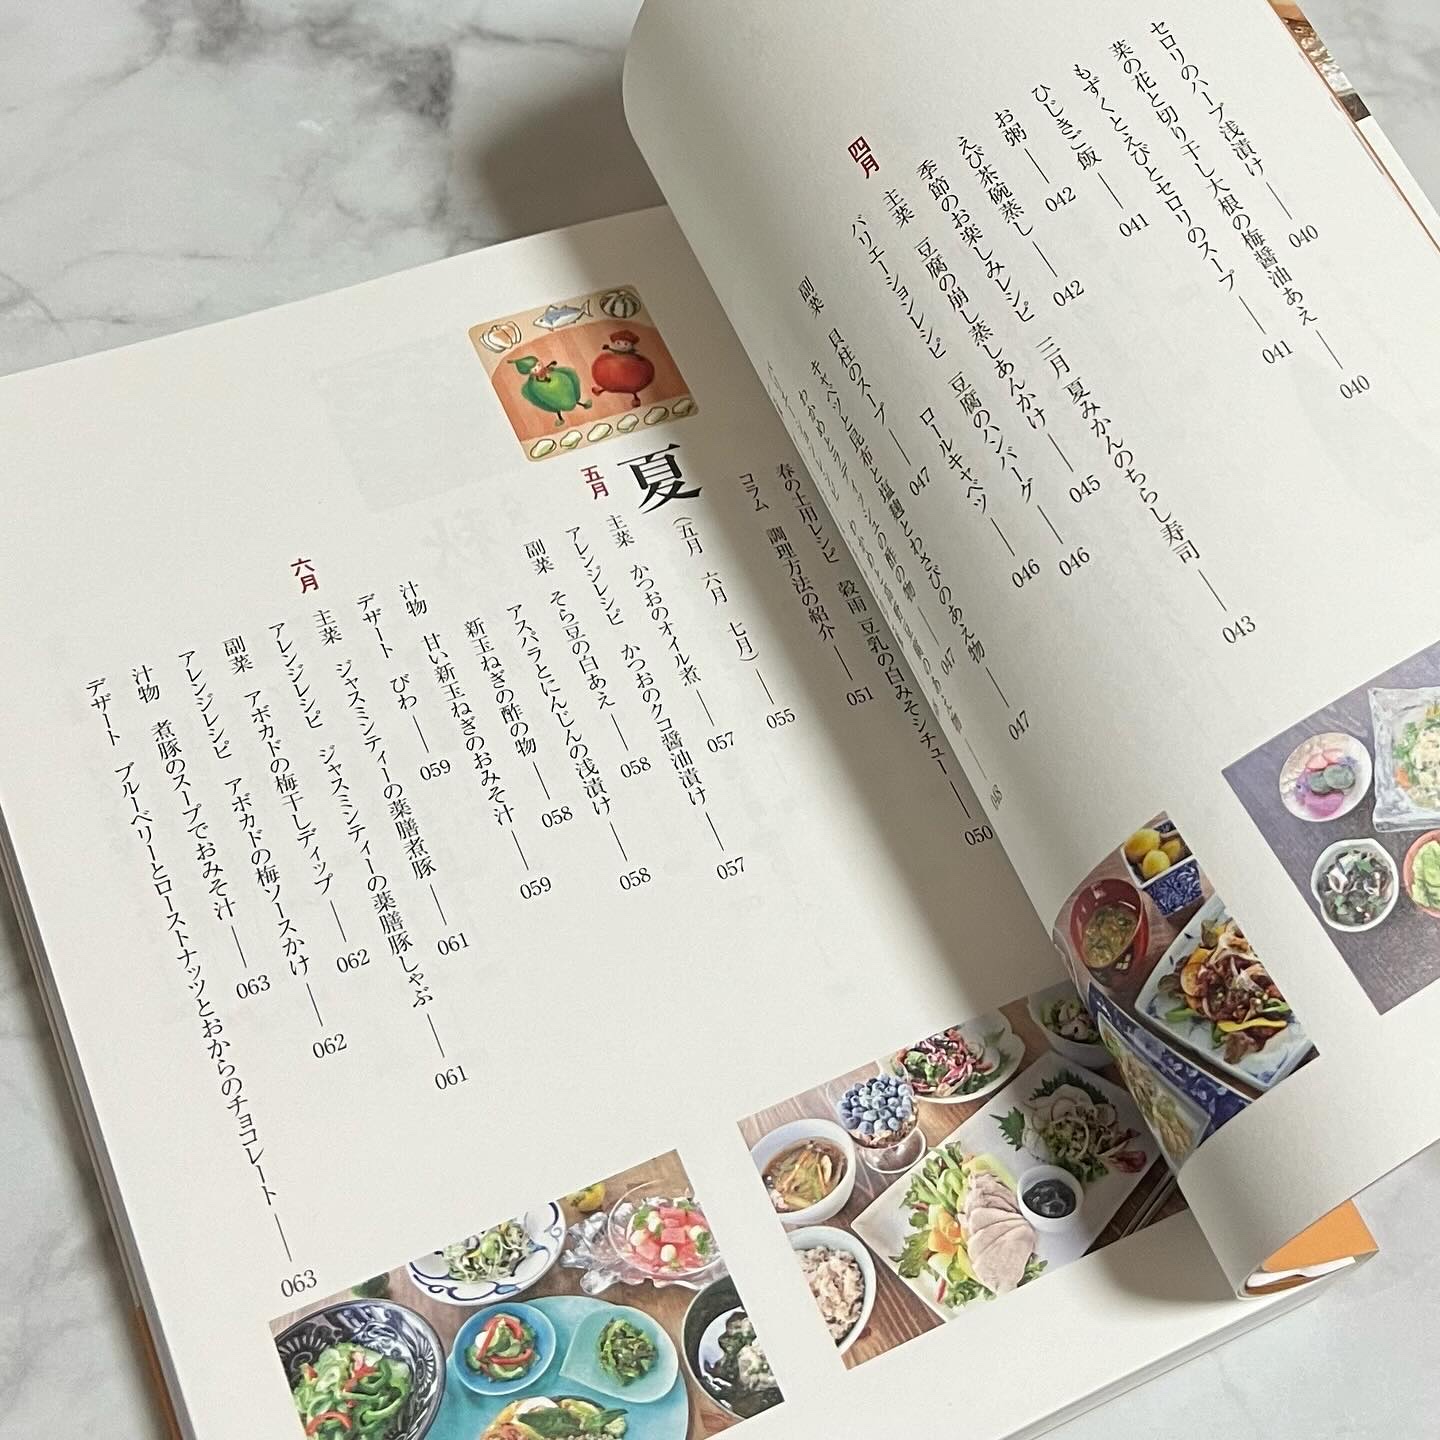 セロリのハーブ浅漬け――040
菜の花と切り干し大根の梅醤油あえ――040
もずくとえびとセロリのスープ――041
ひじきご飯――041
お粥――042
えび茶碗蒸し――042
季節のお楽しみレシピ 三月 夏みかんのちらし寿司――043
四月
主菜 豆腐の崩し蒸しあんかけ――045
バリエーションレシピ 豆腐のハンバーグ――046
ロールキャベツ――046
副菜 貝柱のスープ――047
キャベツと昆布と塩麹とわさびのあえ物――047
わかめとラディッシュの酢の物――047
048
春の土用レシピ 穀雨 豆乳の白みそシチュー――050
コラム 調理方法の紹介――051
夏(五月 六月 七月)――055
五月
主菜 かつおのオイル煮――057
アレンジレシピ かつおのクコ醤油漬け――057
副菜 そら豆の白あえ――058
アスパラとにんじんの浅漬け――058
新玉ねぎの酢の物――058
汁物 甘い新玉ねぎのおみそ汁――059
デザート びわ――059
六月
主菜 ジャスミンティーの薬膳煮豚――061
アレンジレシピ ジャスミンティーの薬膳豚しゃぶ――061
副菜 アボカドの梅干しディップ――062
アレンジレシピ アボカドの梅ソースかけ――062
汁物 煮豚のスープでおみそ汁――063
デザート ブルーベリーとローストナッツとおからのチョコレート――063